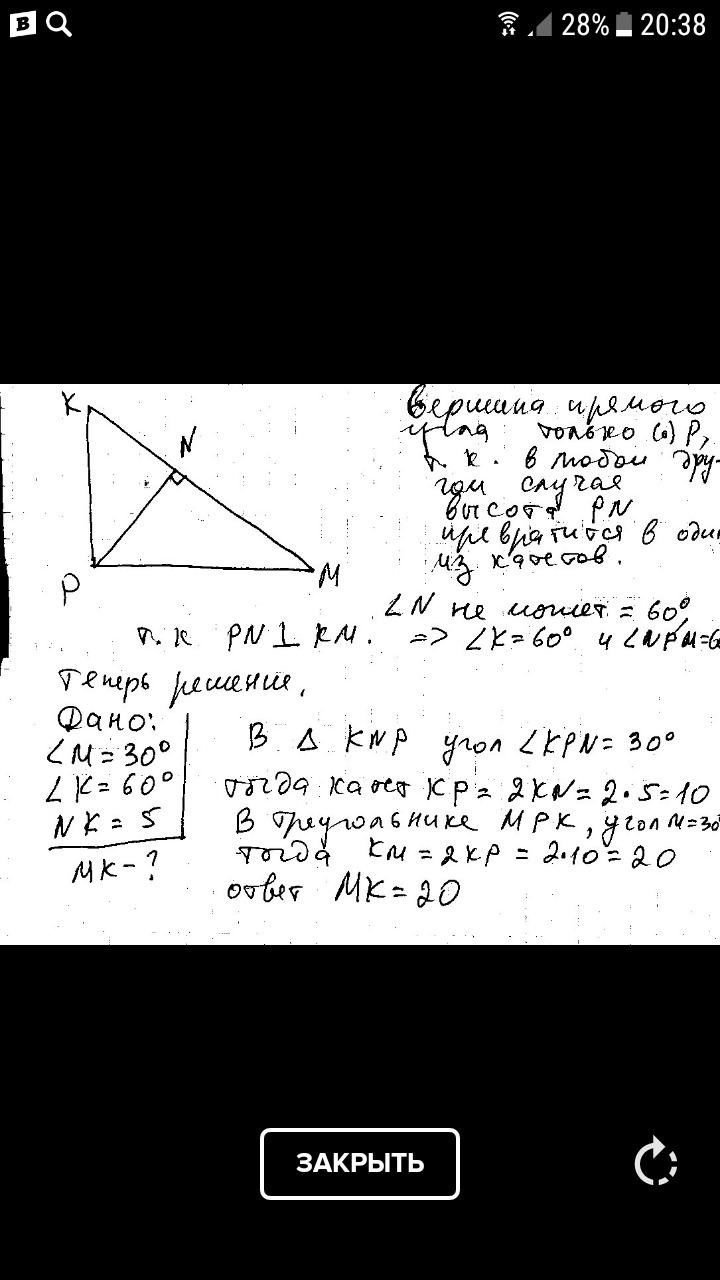 B 28% 20:38
K
N
P
M
Вершина прямого
угла только (·) P,
т. к. в любой дру-
гом случае
высота PN
превратится в один
из катетов.
∠N не может = 60°,
т. к PN ⊥ KM. => ∠K=60° и ∠NPM=6
Теперь решение.
Дано:
∠M=30°
∠K=60°
NK = 5
MK-?
В Δ KNP угол ∠KPN= 30°
тогда катет KP= 2KN= 2·5=10
В треугольнике MPK, угол M=30
тогда KM=2KP = 2·10=20
ответ MK=20
ЗАКРЫТЬ